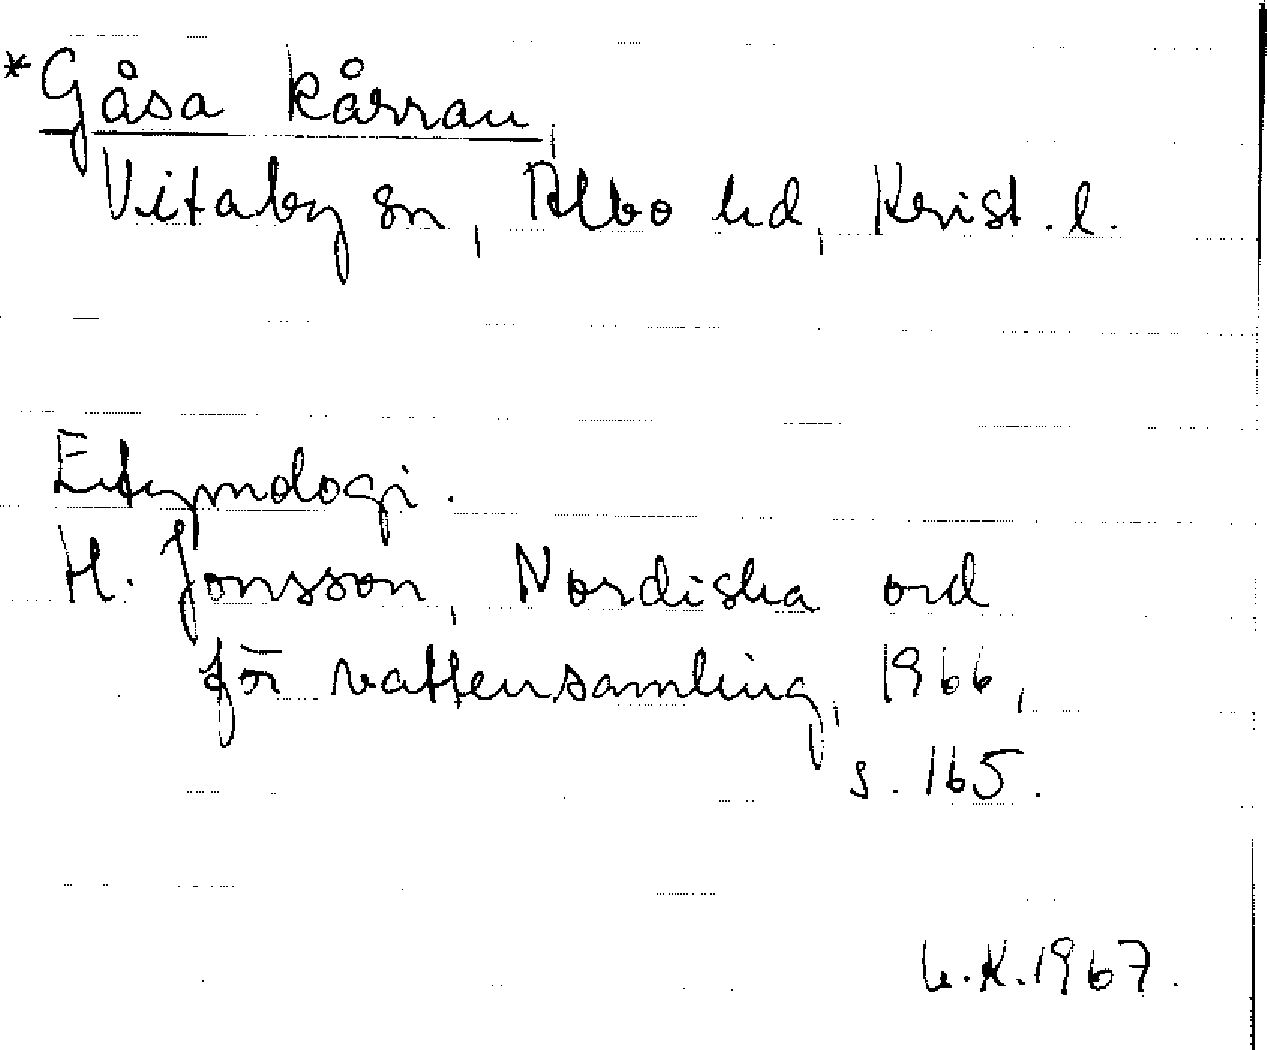 *Gåsa kårran,
Vitaby sn, Albo hd, Krist. l.
Etymologi.
H. Jonsson, Nordiska ord
för vattensamling, 1966,
s. 165.
U.K. 1967.